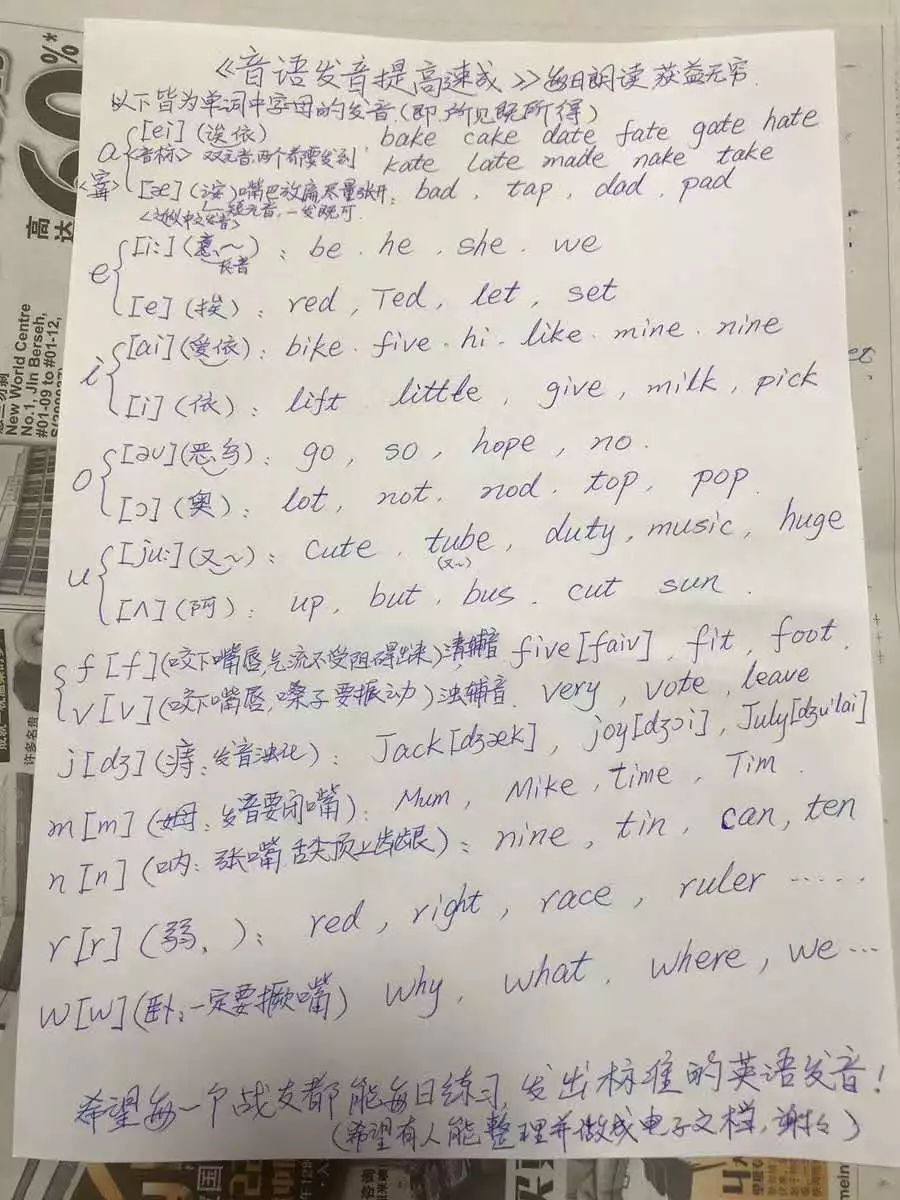 《音语发音提高速成》每日朗读 获益无穷.
以下皆为单词中字母的发音.(即所见既所得)
a [ei] (诶依) bake cake date fate gate hate
<音标> 双元音两个都要发到 kate late made nake take
[æ] (安) 嘴巴放扁尽量张开: bad, tap, dad, pad
<近似中文发音> 短元音,一发既可.
e [i:] (意～) 长音: be. he, she. we
[e] (挨): red, Ted, let, set
i [ai] (爱依): bike. five. hi. like. mine. nine
[i] (依): lift little, give, milk, pick
o [əu] (恶乌): go, so, hope, no.
[ɔ] (奥): lot, not, nod. top, pop.
u [ju:] (又～): cute, tube, duty, music, huge
(又～)
[ʌ] (阿): up, but, bus. cut sun.
f [f] (咬下嘴唇,气流不受阻碍出来) 清辅音 five [faiv], fit, foot.
v [v] (咬下嘴唇,嗓子要振动) 浊辅音. very, vote, leave
j [dʒ] (痔: 发音浊化): Jack [dʒæk], joy [dʒɔi], July [dʒu'lai]
m [m] (姆: 发音要闭嘴): Mum, Mike, time, Tim.
n [n] (呐: 张嘴,舌尖顶上齿龈): nine, tin, can, ten
r [r] (弱、): red, right, race, ruler ......
w [w] (卧: 一定要撅嘴) why, what, where, we ...
希望每一个战友都能每日练习,发出标准的英语发音!
(希望有人能整理并做成电子文档,谢谢)
60%*
高达
New World Centre
No.1, Jln Berseh,
#01-09 to #01-12,
许多名贵